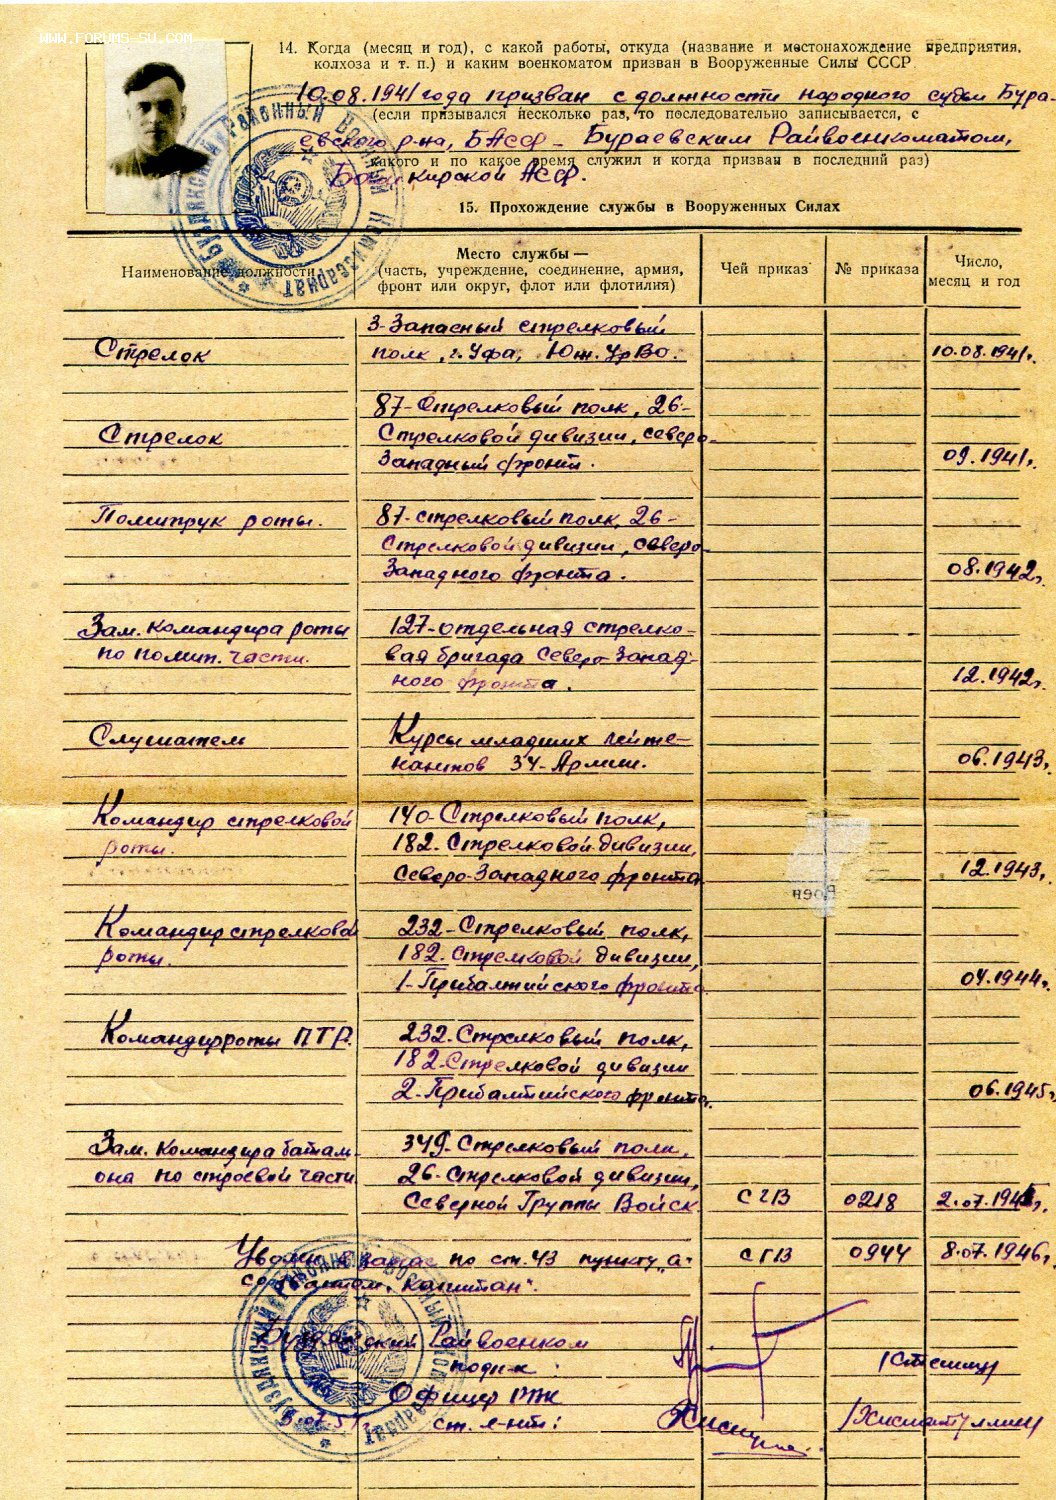 WWW.FORUMS-SU.COM
14. Когда (месяц и год), с какой работы, откуда (название и местонахождение предприятия,
колхоза и т. п.) и каким военкоматом призван в Вооруженные Силы СССР
10.08.1941 года призван с должности народного судьи Бура-
(если призывался несколько раз, то последовательно записывается, с
евского р-на, БАССР - Бураевским Райвоенкоматом,
какого и по какое время служил и когда призван в последний раз)
Башкирской АССР.
15. Прохождение службы в Вооруженных Силах
Наименование должности
Место службы —
(часть, учреждение, соединение, армия,
фронт или округ, флот или флотилия)
Чей приказ
№ приказа
Число,
месяц и год
3-Запасный стрелковый
Стрелок полк, г. Уфа, Юж.УрВО. 10.08.1941г.
87-Стрелковый полк, 26-
Стрелок Стрелковой дивизии, Северо-
Западный фронт. 09.1941г.
Политрук роты. 87-стрелковый полк, 26-
Стрелковой дивизии, Северо-
Западного фронта. 08.1942г.
Зам. командира роты 127-отдельная стрелко-
по полит. части. вая бригада Северо-Запад-
ного фронта. 12.1942г.
Слушатель Курсы младших лейте-
нантов 34-Армии. 06.1943г.
Командир стрелковой 140-Стрелковый полк,
роты. 182-Стрелковой дивизии,
Северо-Западного фронта 12.1943г.
Командир стрелковой 232-Стрелковый полк,
роты. 182-Стрелковой дивизии,
1-Прибалтийского фронта. 04.1944г.
Командир роты ПТР. 232-Стрелковый полк,
182-Стрелковой дивизии
2-Прибалтийского фронта. 06.1945г.
Зам. Командира баталь- 349-Стрелковый полк,
она по строевой части 26-Стрелковой дивизии,
Северной Группы Войск СГВ 0218 2.07.1945г.
Уволен в запас по ст. 43 пункту "а" СГВ 0944 8.07.1946г.
с "капитан".
Буздякский Райвоенком
подп-к:
Офицер
ст. л-нт: /Хисматуллин/
Буздякский Районный Военный Комиссариат
Буздякский Районный Военный Комиссариат